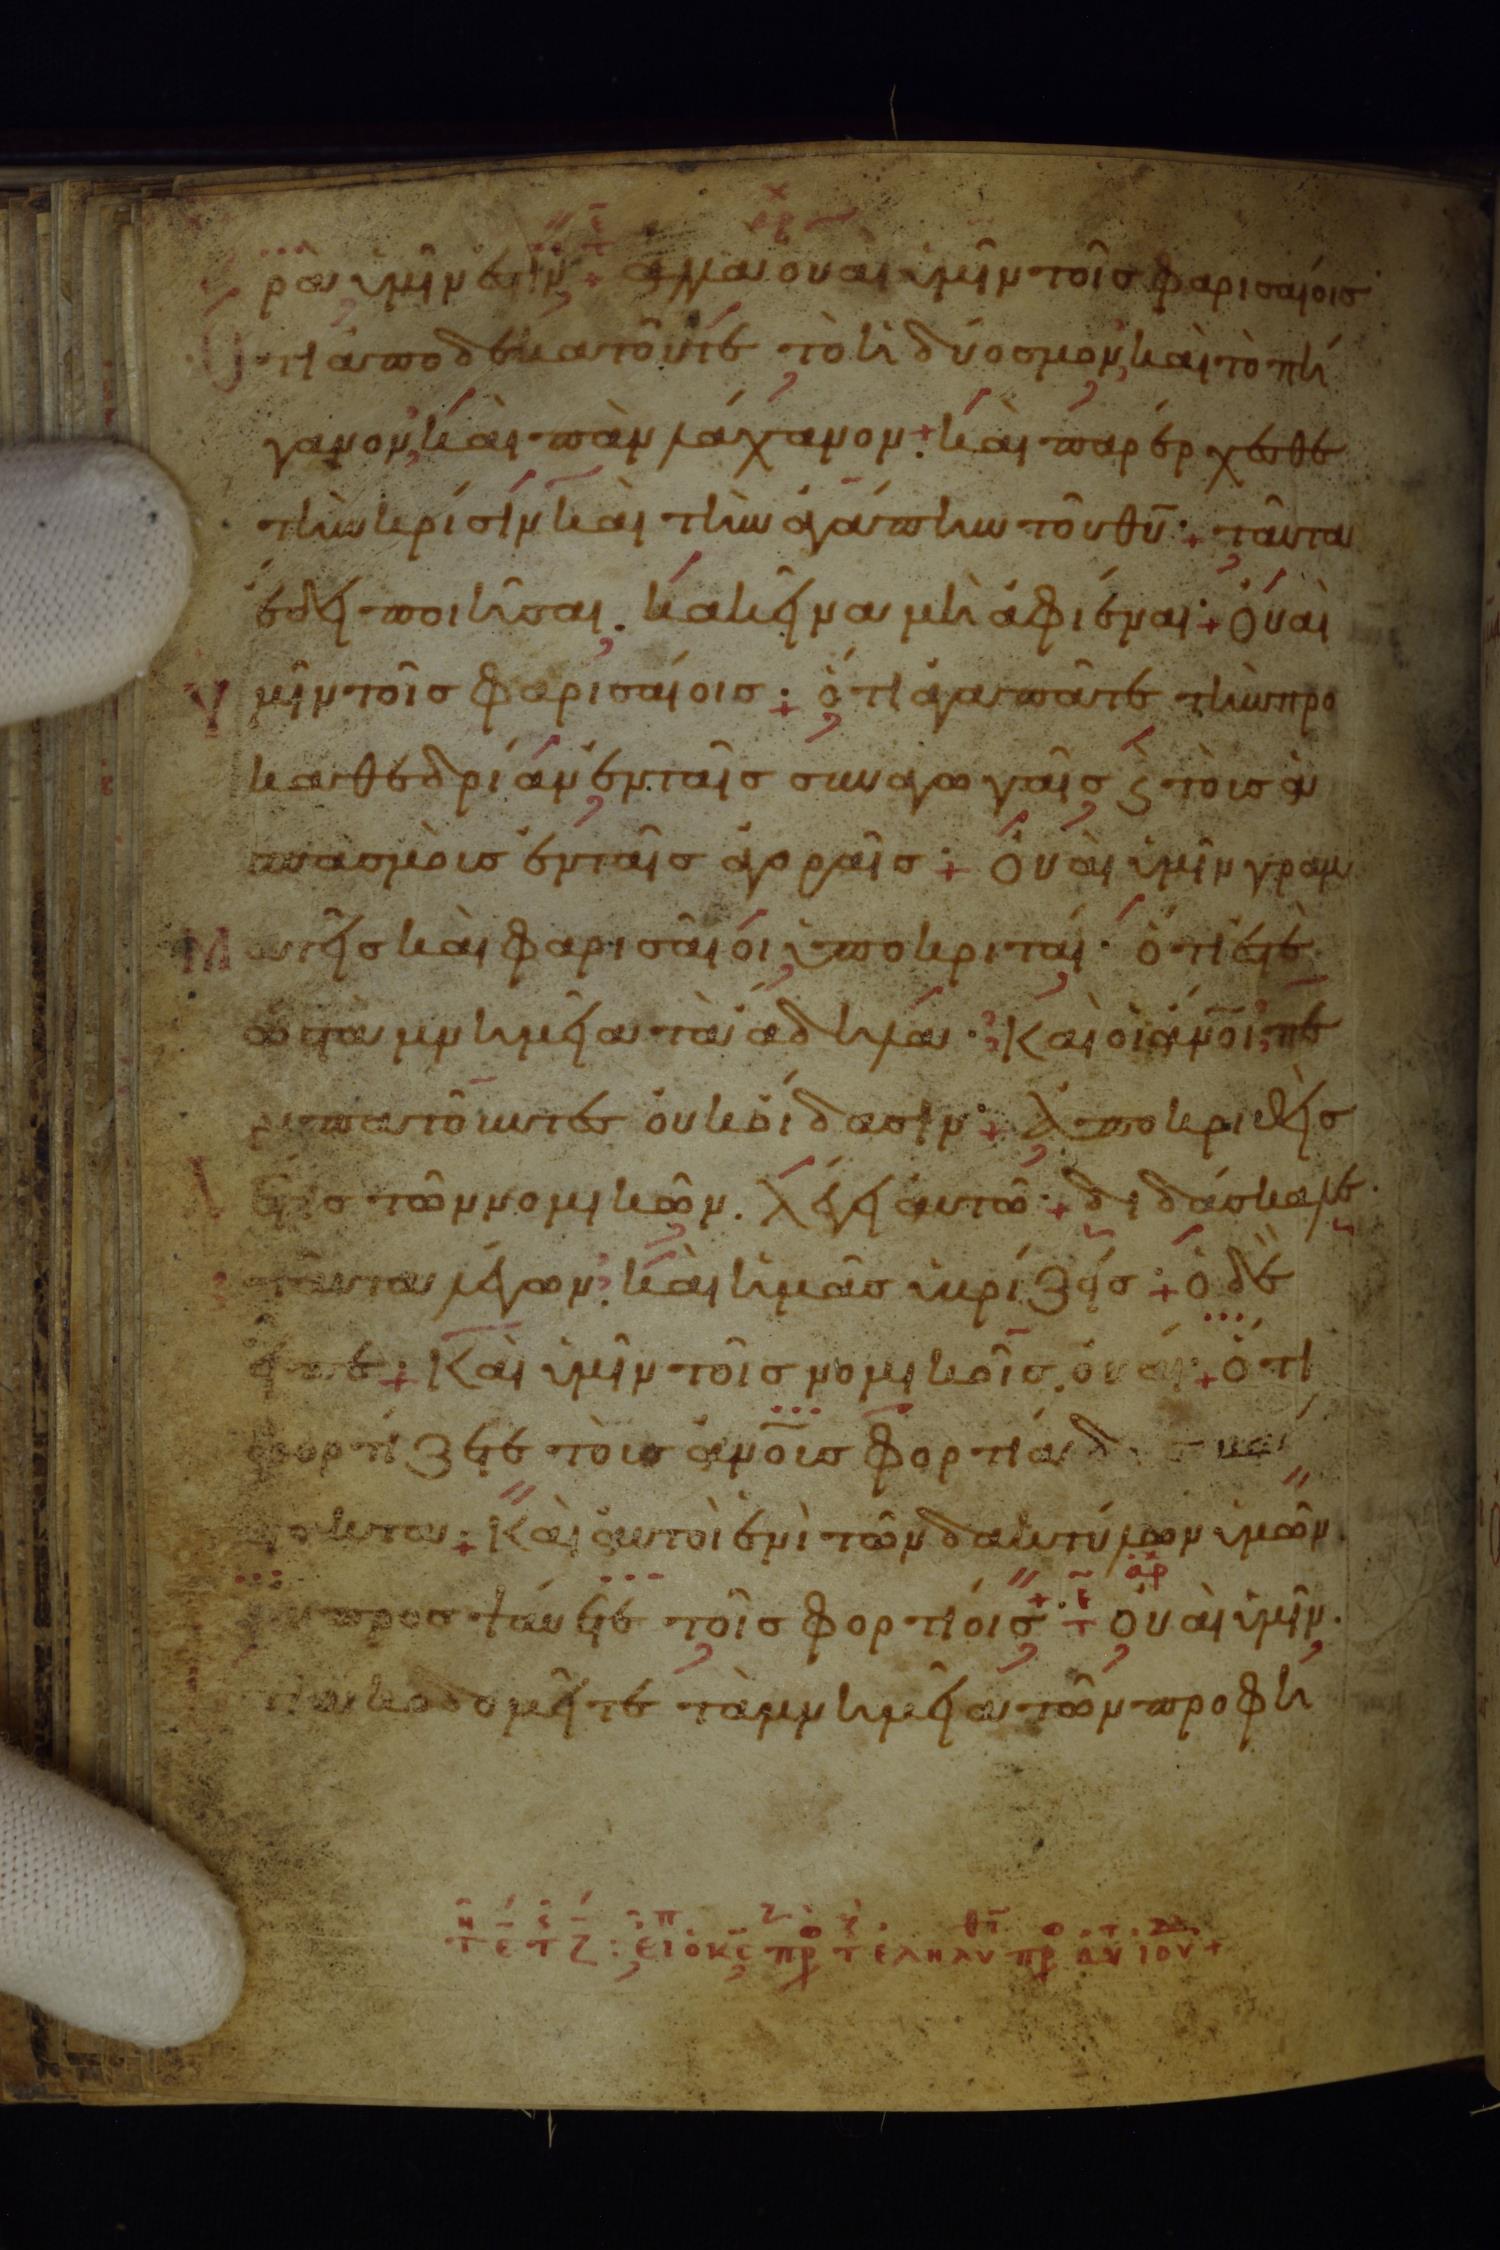 ρὰ ὑμῖν ἐστίν· ἀλλα οὐαὶ ὑμῖν τοῖς φαρισαίοις
ὅτι ἀποδεκατοῦτε τὸ ἡδύοσμον, καὶ τὸ πή
γανον, καὶ πὰν λάχανον· καὶ παρέρχεσθε
τὴν κρίσιν καὶ τὴν ἀγάπην τοῦ θῡ· ταῦτα
ἔδει ποιῆσαι, κακεῖνα μὴ ἀφιέναι· Οὐαὶ
ὑμῖν τοῖς φαρισαίοις· ὅτι ἀγαπᾶτε τὴν προ
καθεδρίαν ἐν ταῖς συναγωγαῖς ϗ τοὺς ἀ
σπασμοὺς ἐν ταῖς ἀγοραῖς· Οὐαὶ ὑμῖν γραμ
ματεῖς καὶ φαρισαῖοι ὑποκριταί· ὅτι ἐστὲ
ὡς τὰ μνημεῖα τὰ ἄδηλα· Καὶ οἱ ἄνοι, πε
ριπατοῦντες οὐκ οἴδασιν· Ἀποκριθεὶς
δέ τις τῶν νομικῶν. λέγει αὐτῶ· διδάσκαλε
ταῦτα λέγων, καὶ ἡμᾶς ὑβρίζεις· ὁ δὲ
εἶπε· Καὶ ὑμῖν τοῖς νομικοῖς, οὐαί· ὅτι
φορτίζετε τοὺς ἀνοῡς φορτία δυσβά
στακτα· Καὶ αὐτοὶ ἑνὶ τῶν δακτύλων ὑμῶν
οὐ προσψαύετε τοῖς φορτίοις· Οὐαὶ ὑμῖν.
ὅτι οἰκοδομεῖτε τὰ μνημεῖα τῶν προφή